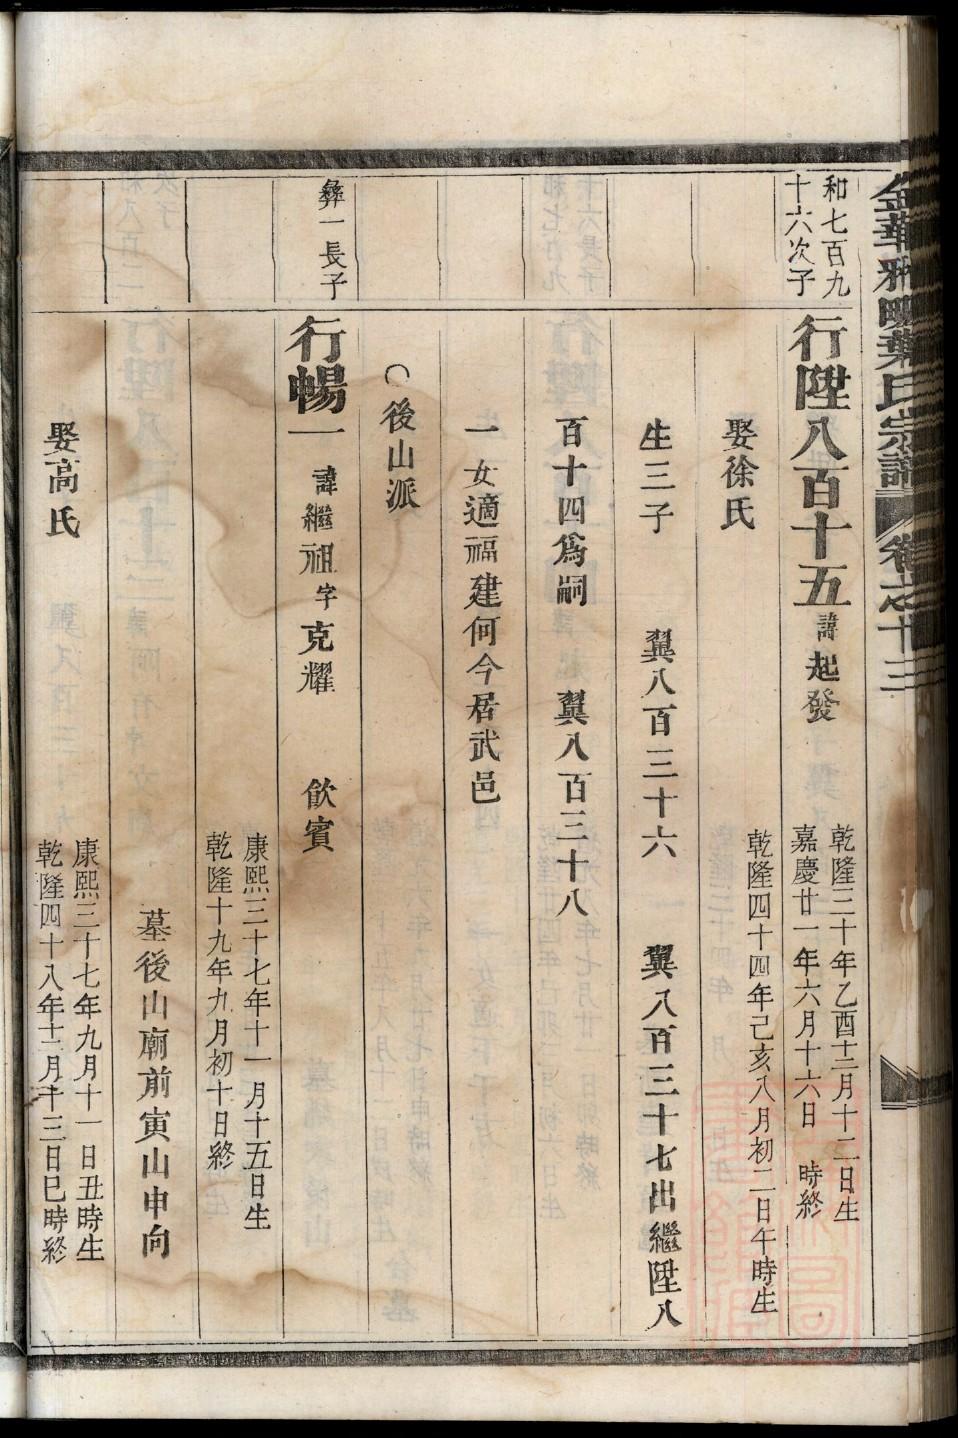 金華雅畈葉氏宗譜 卷之十三
和七百九
十六次子
行陞八百十五 諱起發
乾隆三十年乙酉十二月十二日生
嘉慶廿一年六月十六日 時終
娶徐氏
乾隆四十四年己亥八月初二日午時生
生三子 翼八百三十六 翼八百三十七出繼陞八
百十四爲嗣 翼八百三十八
一女適福建何今居武邑
○後山派
彝一長子
行暢一 諱繼祖字克耀 飲賓
康熙三十七年十一月十五日生
乾隆十九年九月初十日終
墓後山廟前寅山申向
娶高氏
康熙三十七年九月十一日丑時生
乾隆四十八年十二月十三日巳時終